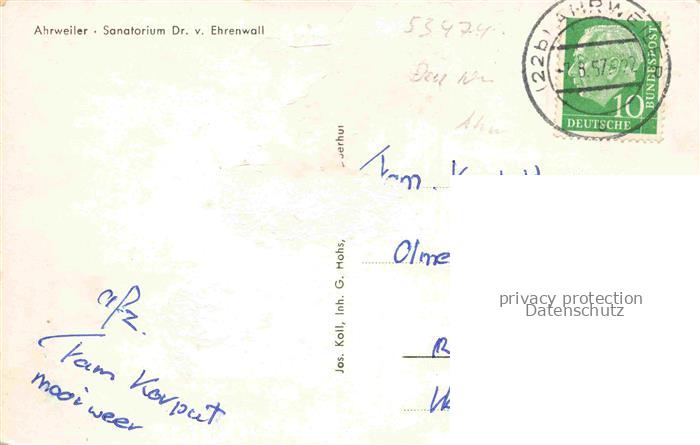 Ahrweiler · Sanatorium Dr. v. Ehrenwall
53474
(22b) AHRWEI
.8.57
10
DEUTSCHE
BUNDESPOST
Jos. Koll, Inh. G. Hohs,
Fam. K
Olme
privacy protection
Datenschutz
afz.
Fam Korput
mooi weer